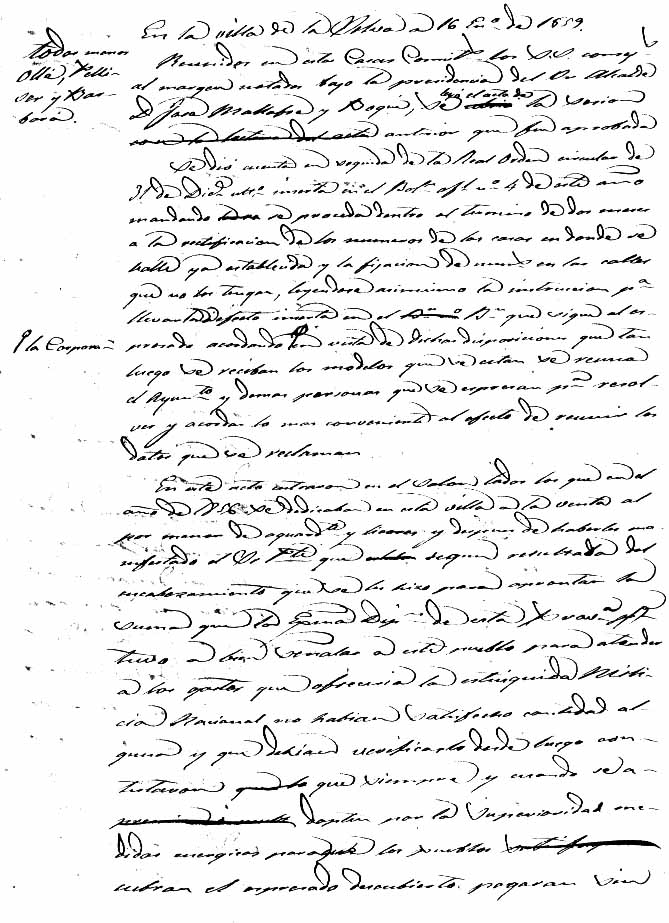 En la villa de la Selva a 16 En.º de 1859.
todos menos
Ollé, Pelli-
ser y Bar-
bará.
Reunidos en esta Casa Comit.l los S.S. consej.s
al margen notados bajo la presidencia del Sr Alcalde
D. José Mallafré y Roqué, se leyó el acta de la sesion
con la lectura del acta anterior que fué aprobada
Se dió cuenta en seguida de la Real Orden circular de
31 de Dic.e ult.º inserta en el Bol.n ofl. n.º 4 de este año
mandando se proceda dentro el termino de dos meses
a la rectificacion de los numeros de las casas en donde se
halle ya establecida y la fijacion de en las calles
que no los tengan, leyendose asimismo la instruccion p.a
llevarlo á efecto inserta en el B.n que sigue al es-
la Corpora.n
presado acordando en vista de dichas disposiciones que tan
luego se reciban los modelos que se citan se reuna
el Ayun.to y demas personas que se espresan p.a resol-
ver y acordar lo mas conveniente al efecto de reunir los
datos que se reclaman
En este acto entraron en el salon todos los que en el
año de 1856 se dedicaban en esta villa a la venta al
por menor de aguard.te y licores y despues de haberles ma-
nifestado el Sr P.te que segun resultado del
encabezamiento que se les hizo para aprontar la
suma que la Exma Dip.n de esta
tuvo a bien señalar a este pueblo para atender
a los gastos que ofrecería la estinguida Mili-
cia Nacional no habian satisfecho cantidad al-
guna y que debian verificarlo desde luego con-
testaron que siempre y cuando se a-
dopten por la Superioridad me-
didas energicas para que los pueblos
cubran el espresado descubierto pagaran sin